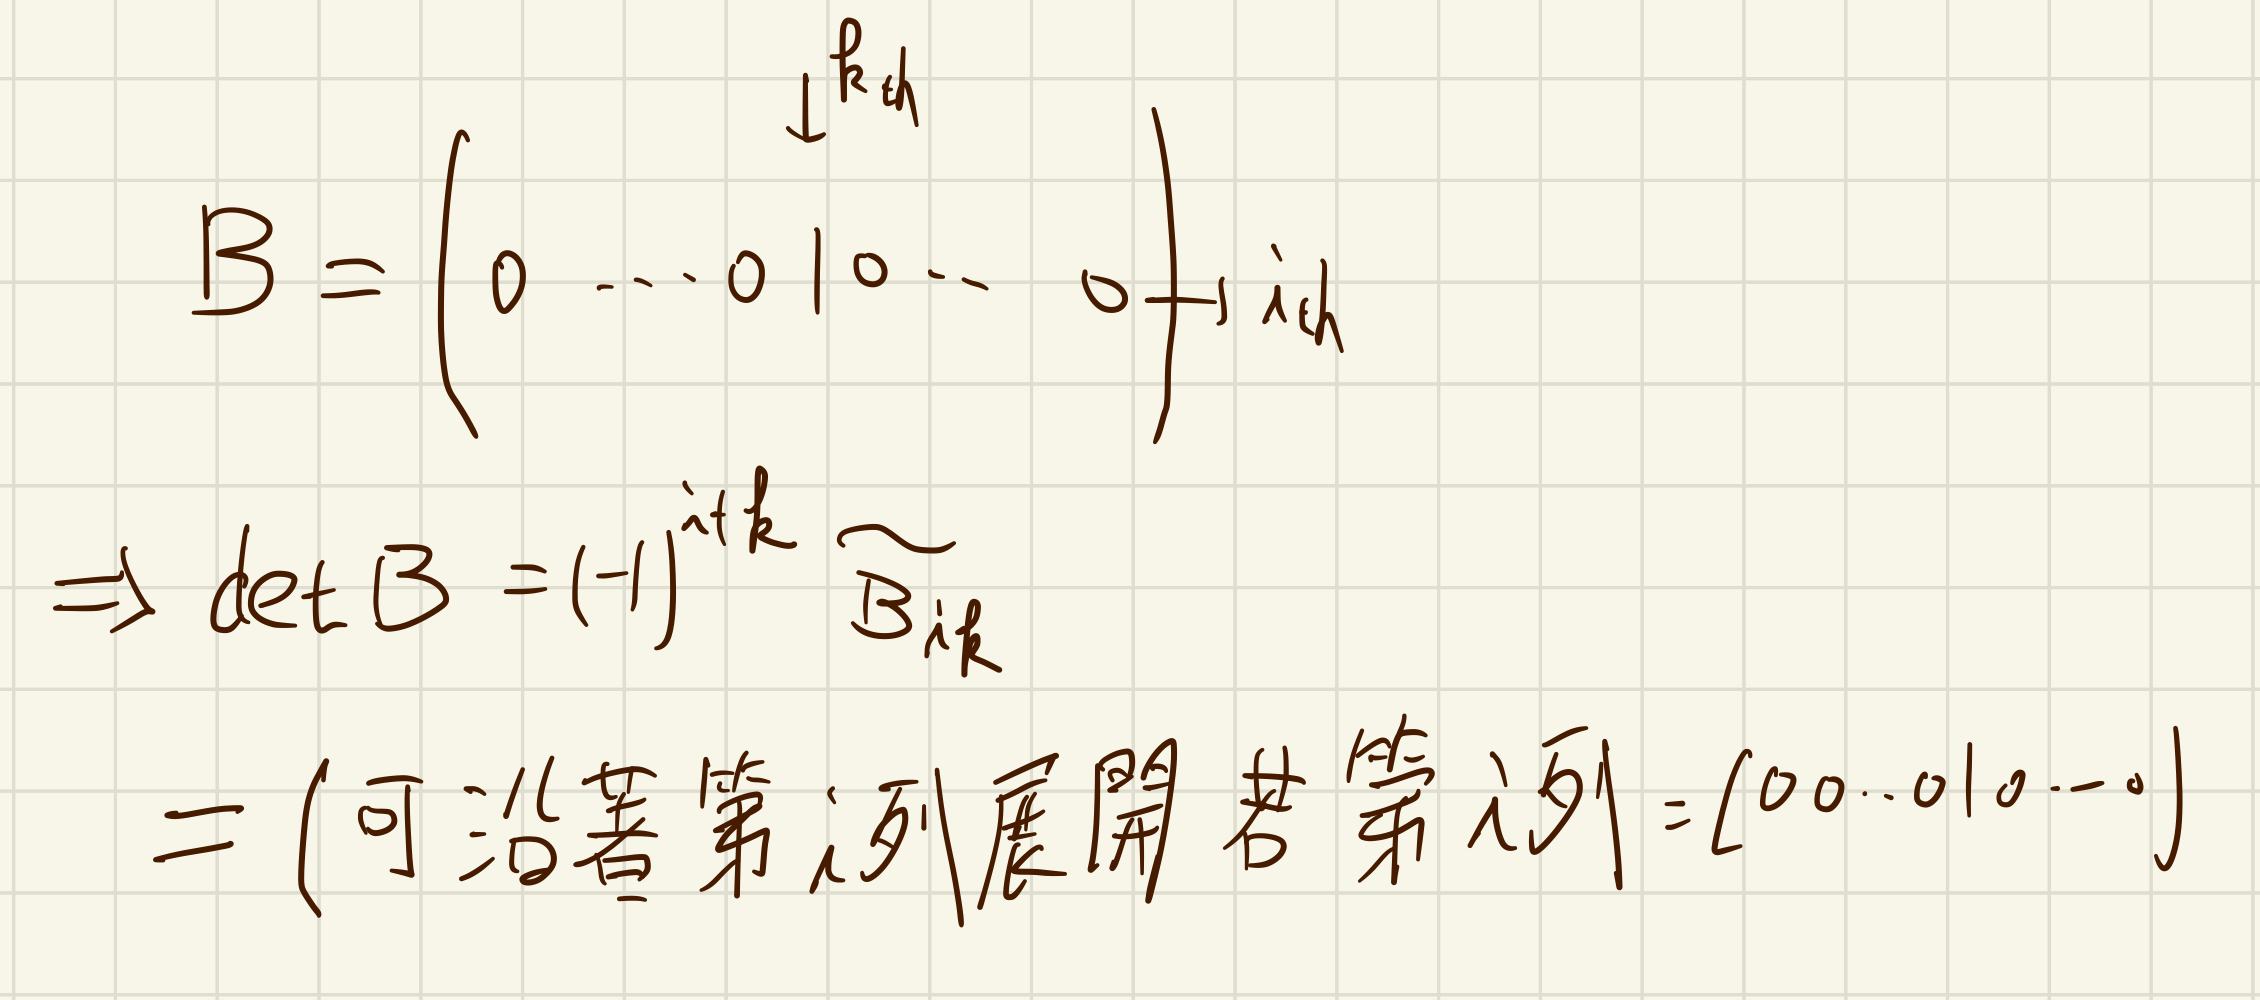 ↓ kth
B = ( 0 --- 0 1 0 -- 0 ) → ith
⇒ det B = (-1)^{i+k} \widetilde{B}_{ik}
= (可沿著第 i 列展開若第 i 列 = (00..010---0)